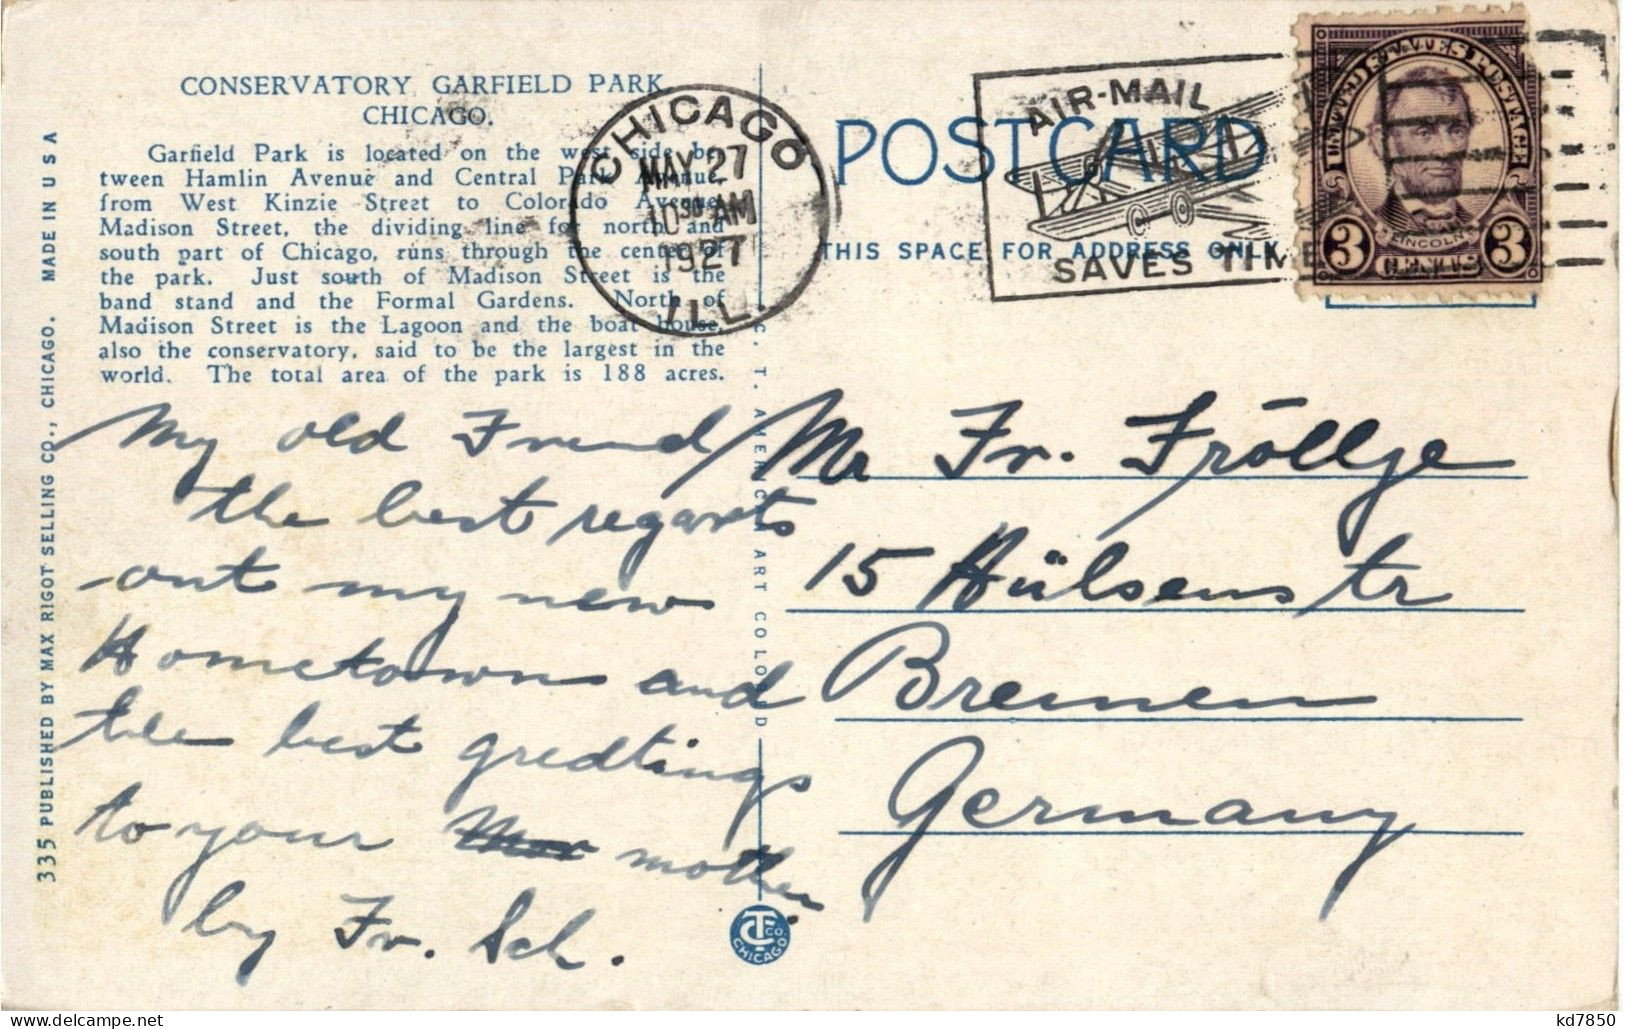 CONSERVATORY GARFIELD PARK,
CHICAGO.
Garfield Park is located on the west side be-
tween Hamlin Avenue and Central Park Avenue,
from West Kinzie Street to Colorado Avenue.
Madison Street, the dividing line for north and
south part of Chicago, runs through the center of
the park. Just south of Madison Street is the
band stand and the Formal Gardens. North of
Madison Street is the Lagoon and the boat house,
also the conservatory, said to be the largest in the
world. The total area of the park is 188 acres.
335 PUBLISHED BY MAX RIGOT SELLING CO., CHICAGO. MADE IN U S A
My old Friend
the best regarts
out my new
Hometown and
the best gredtings
to your mother
by Fr. Sch.
C. T. AMERICAN ART COLORED
CT CO
CHICAGO
CHICAGO
MAY 27
10 30 AM
1927
ILL.
AIR-MAIL
SAVES TIME
POSTCARD
THIS SPACE FOR ADDRESS ONLY
UNITED STATES POSTAGE
LINCOLN
3 CENTS 3
Mr Fr. Fröllje
15 Hülsenstr
Bremen
Germany
kd7850